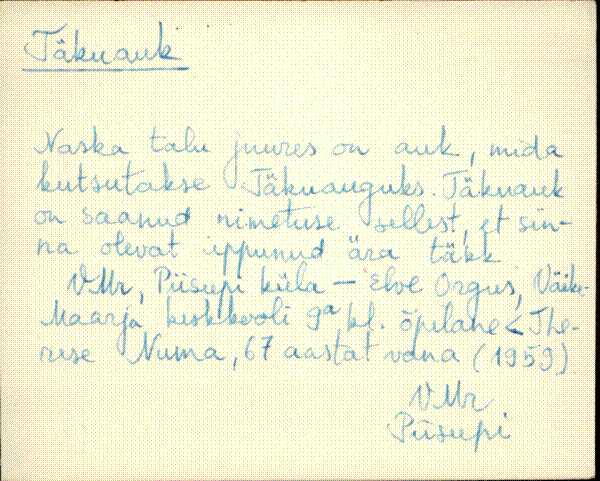 Täkuauk
Naska talu juures on auk, mida
kutsutakse Täkuauguks. Täkuauk
on saanud nimetuse sellest, et sin-
na olevat uppunud ära täkk
VMr, Piisupi küla — Elve Orgus, Väike-
Maarja keskkooli 9a kl. õpilane < The-
rese Numa, 67 aastat vana (1959)
VMr
Piisupi